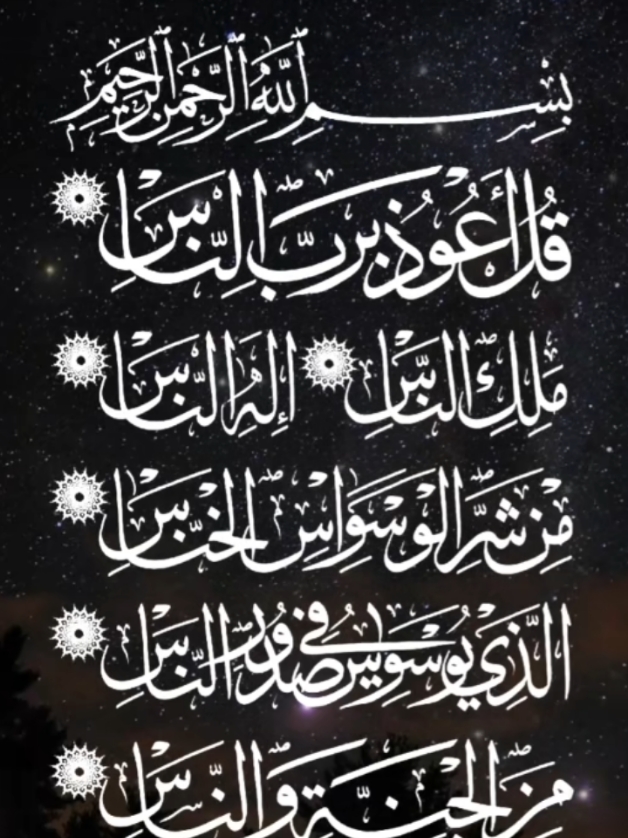 بِسْمِ اللَّهِ الرَّحْمٰنِ الرَّحِيمِ
قُلْ أَعُوذُ بِرَبِّ النَّاسِ
مَلِكِ النَّاسِ إِلٰهِ النَّاسِ
مِنْ شَرِّ الْوَسْوَاسِ الْخَنَّاسِ
الَّذِي يُوَسْوِسُ فِي صُدُورِ النَّاسِ
مِنَ الْجِنَّةِ وَالنَّاسِ